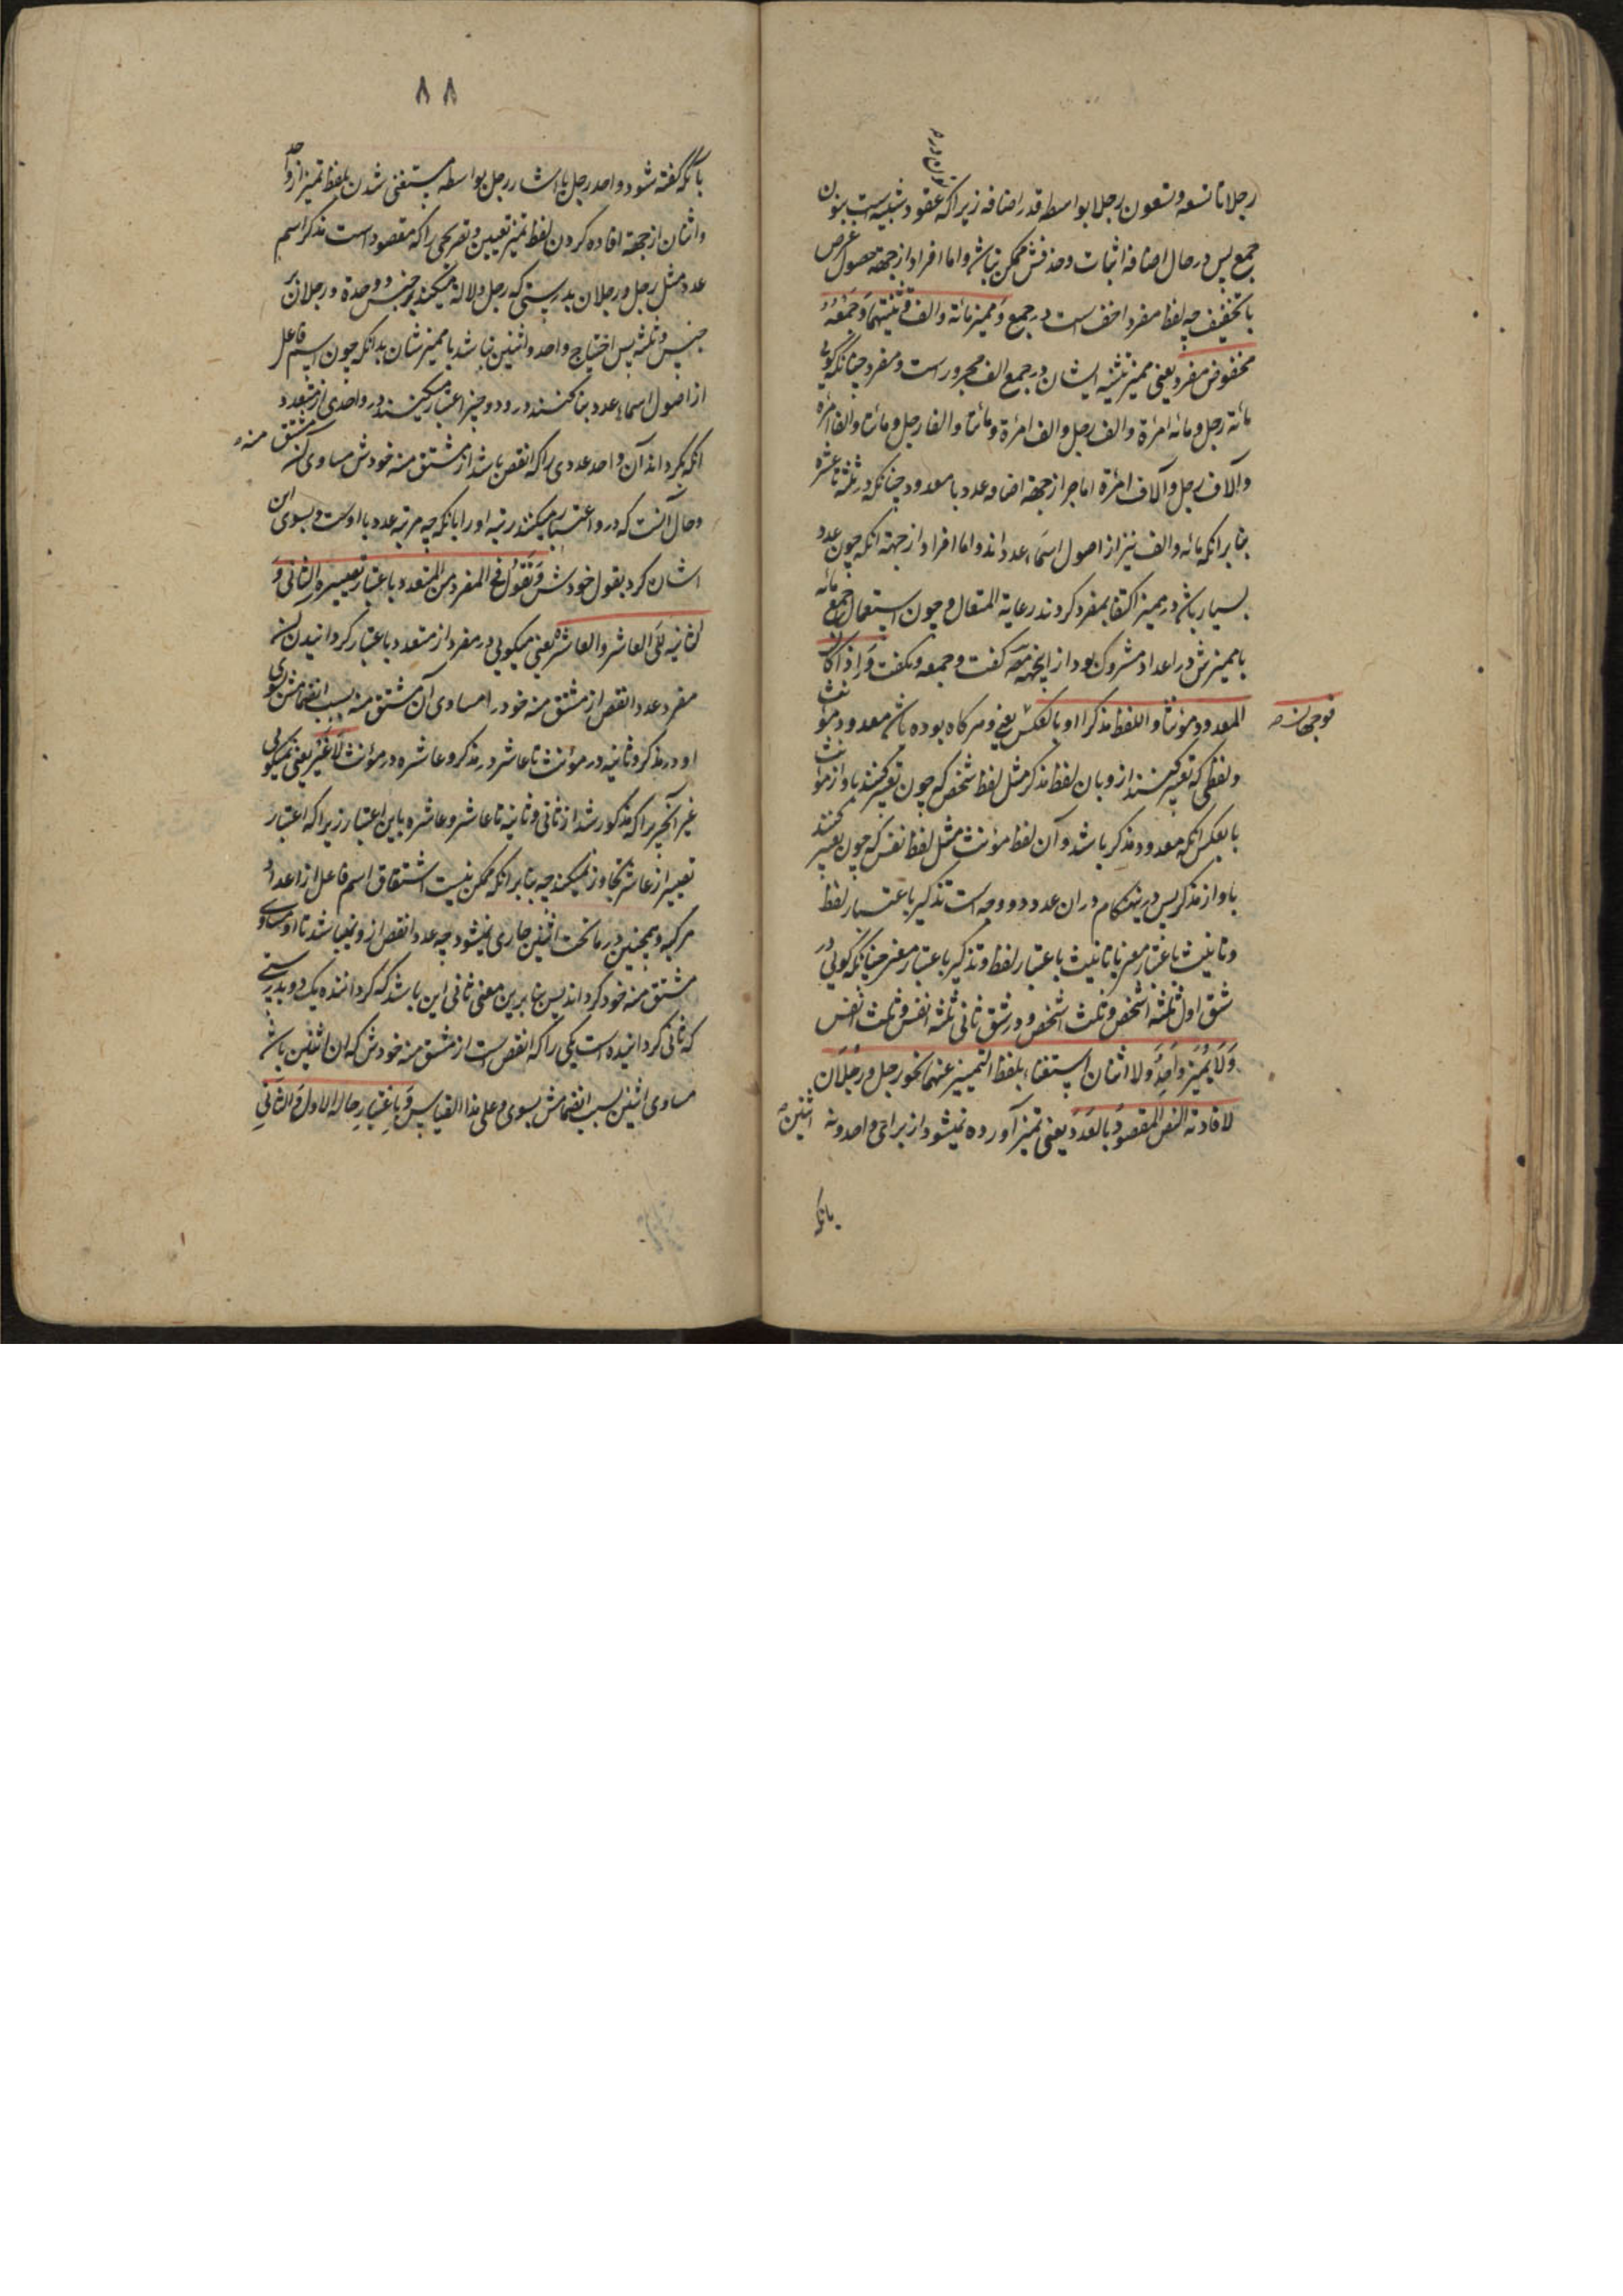 رجلا تا تسعه و تسعون رجلا بواسطه قدر اضافه زیراکه عقود شبیه است بنون
جمع پس در حال اضافه اثبات و حذفش ممکن نباشد و اما افراد از جهه حصول غرض
با تخفیف چه لفظ مفرد اخف است در جمع و ممیز مائة و الف و تثنیتهما و جمعه
مخفوض مفرد یعنی ممیز تثنیه ایشان و در جمع الف مجرور است و مفرد چنانکه کویی
مائة رجل و مائه امرئة و الف رجل و الف امرئة و مائتا و الفا رجل و مائتا و الفا امرئة
و آلاف رجل و آلاف امرئة اما جر از جهة اضافه عدد با معدود چنانکه در ثلثه تا عشره
بنا بر انکه مائه و الف نیز از اصول اسماء عدد اند و اما افراد از جهته انکه چون عدد
بسیار باشد در ممیز اکتفا بمفرد کردند رعایة المتعال و چون استعمال جمع مائه
با ممیزش در اعداد متروک بود از اینجهة جمعه کفت و جمعهما نکفت و اذا کان
المعدود مؤنثا و اللفظ مذکرا او بالعکس یعنی و هر کاه بوده باشد معدود مؤنث
فوجهان
و لفظی که تعبیر کنند از و بان لفظ مذکر مثل لفظ شخص که چون تعبیر کنند باو از مؤنث
یا بعکس انکه معدود مذکر باشد و آن لفظ مؤنث مثل لفظ نفس که چون تعبیر کنند
باو از مذکر پس درینهنکام در ان عدد دو وجه است تذکیر باعتبار لفظ
و تانیث باعتبار معنی یا تانیث باعتبار لفظ و تذکیر باعتبار معنی چنانکه کویی در
شق اول ثلثة اشخص و ثلث اشخص و در شق ثانی ثلثة انفس و ثلث انفس
و لا یمیز واحد و لا اثنان استغناء بلفظ التمییز عنهما نحو رجل و رجلان
لافادته النص المقصود بالعدد یعنی تمیز آورده نمیشود از برای واحد و نه اثنین
بانکه
٨٨
بانکه کفته شود واحد رجل یا اثنا رجل بواسطه مستغنی شدن بلفظ تمیز از واحد
و اثنان از جهة افاده کردن لفظ تمیز تعیین و تصریحی را که مقصود است بذکر اسم
عدد مثل رجل و رجلان بدرستی که رجل دلالة میکند بر جنس و وحدة و رجلان بر
جنس و تثنیه پس احتیاج واحد و اثنین نباشد با ممیزشان بدانکه چون اسم فاعل
از اصول اسماء عدد بنا کنند در و دو چیز اعتبار میکنند در واحدی از متعدد
انکه بکرداند آن واحد عددی را که انقص باشد از مشتق منه خودش مساوی آن مشتق منه
و حال آنست که در و اعتبار میکنند رتبه او را بانکه چه مرتبه عدد با اوست و بسوی این
اشاره کرد بقول خودش و تقول فی المفرد من المتعدد باعتبار تصییره الثانی و
الثانیه الی العاشر و العاشرة یعنی میکویی در مفرد از متعدد باعتبار کردانیدن آن
مفرد عدد انقص از مشتق منه خود را مساوی آن مشتق منه بسبب انضمامش بسوی
او در مذکر و ثانیه در مؤنث تا عاشر در مذکر و عاشره در مؤنث لا غیر یعنی نمیکویی
غیر آنچیز را که مذکور شد از ثانی و ثانیه تا عاشر و عاشره باین اعتبار زیراکه اعتبار
تصییر از عاشر تجاوز نمیکند چه بنا بر انکه ممکن نیست اشتقاق اسم فاعل از اعداد
مرکبه و همچنین در ماتحت اثنین جاری نمیشود چه عدد انقص ازو نمیباشد تا او مساوی
مشتق منه خود کرداند پس بنابرین معنی ثانی این باشد که کرداننده یک دو بدرستی
که ثانی کردانیده است یکی را که انقص است از مشتق منه خودش که ان اثنین باشد
مساوی اثنین بسبب انضمامش بسوی و علی هذا القیاس و باعتبار حاله الاول و الثانی